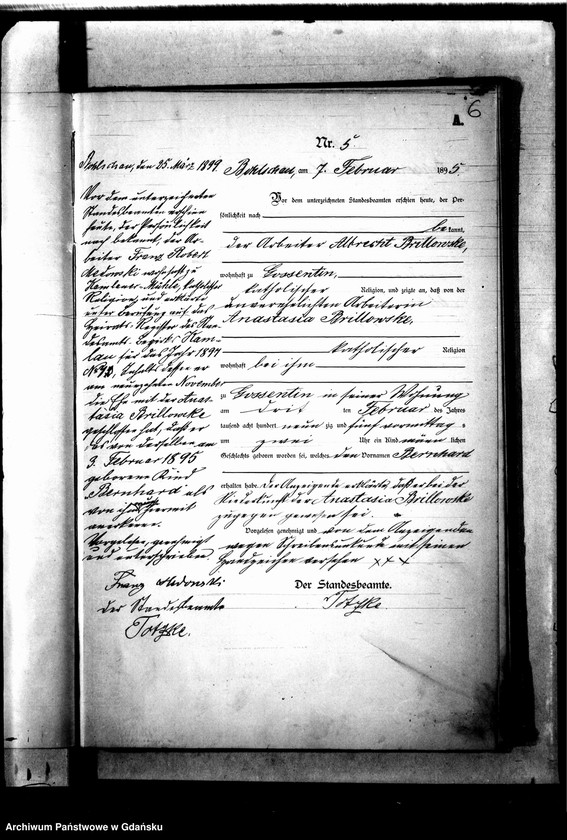 6
A.
Nr. 5
Bohlschau, den 25. März 1899.
Vor dem unterzeichneten
Standesbeamten erschien
heute, der Persönlichkeit
nach bekannt, der Ar-
beiter Franz Robert
wohnhaft zu
Mühle, katholischer
Religion, und erklärte
unter Berufung auf das
Heirats-Register des Stan-
desamts Bezirk
für das Jahr 1897
Nr. inhalts dessen er
am neunzehnten November
die Ehe mit der Anas-
tasia Brillowske
geschlossen hat, daß er
das von derselben am
3. Februar 1895
geborene Kind
Bernhard als
von ihm
anerkenne.
Vorgelesen, genehmigt
und unterschrieben.
Franz
Der Standesbeamte
Totzke.
Bohlschau, am 7. Februar 1895
Vor dem unterzeichneten Standesbeamten erschien heute, der Per-
sönlichkeit nach
bekannt,
der Arbeiter Albrecht Brillowske,
wohnhaft zu Gossentin,
katholischer Religion, und zeigte an, daß von der
unverehelichten Arbeiterin
Anastasia Brillowske,
katholischer Religion
wohnhaft bei ihm
zu Gossentin in seiner Wohnung
am drit ten Februar des Jahres
tausend acht hundert neun zig und fünf vormittags
um zwei Uhr ein Kind männlichen
Geschlechts geboren worden sei, welches den Vornamen Bernhard
erhalten habe. Der Anzeigende erklärte, daß er bei der
Niederkunft der Anastasia Brillowske
zugegen gewesen sei.
Vorgelesen, genehmigt und von dem Anzeigenden
wegen Schreibensunkunde mit seinem
Handzeichen versehen xxx
Der Standesbeamte.
Totzke
Archiwum Państwowe w Gdańsku